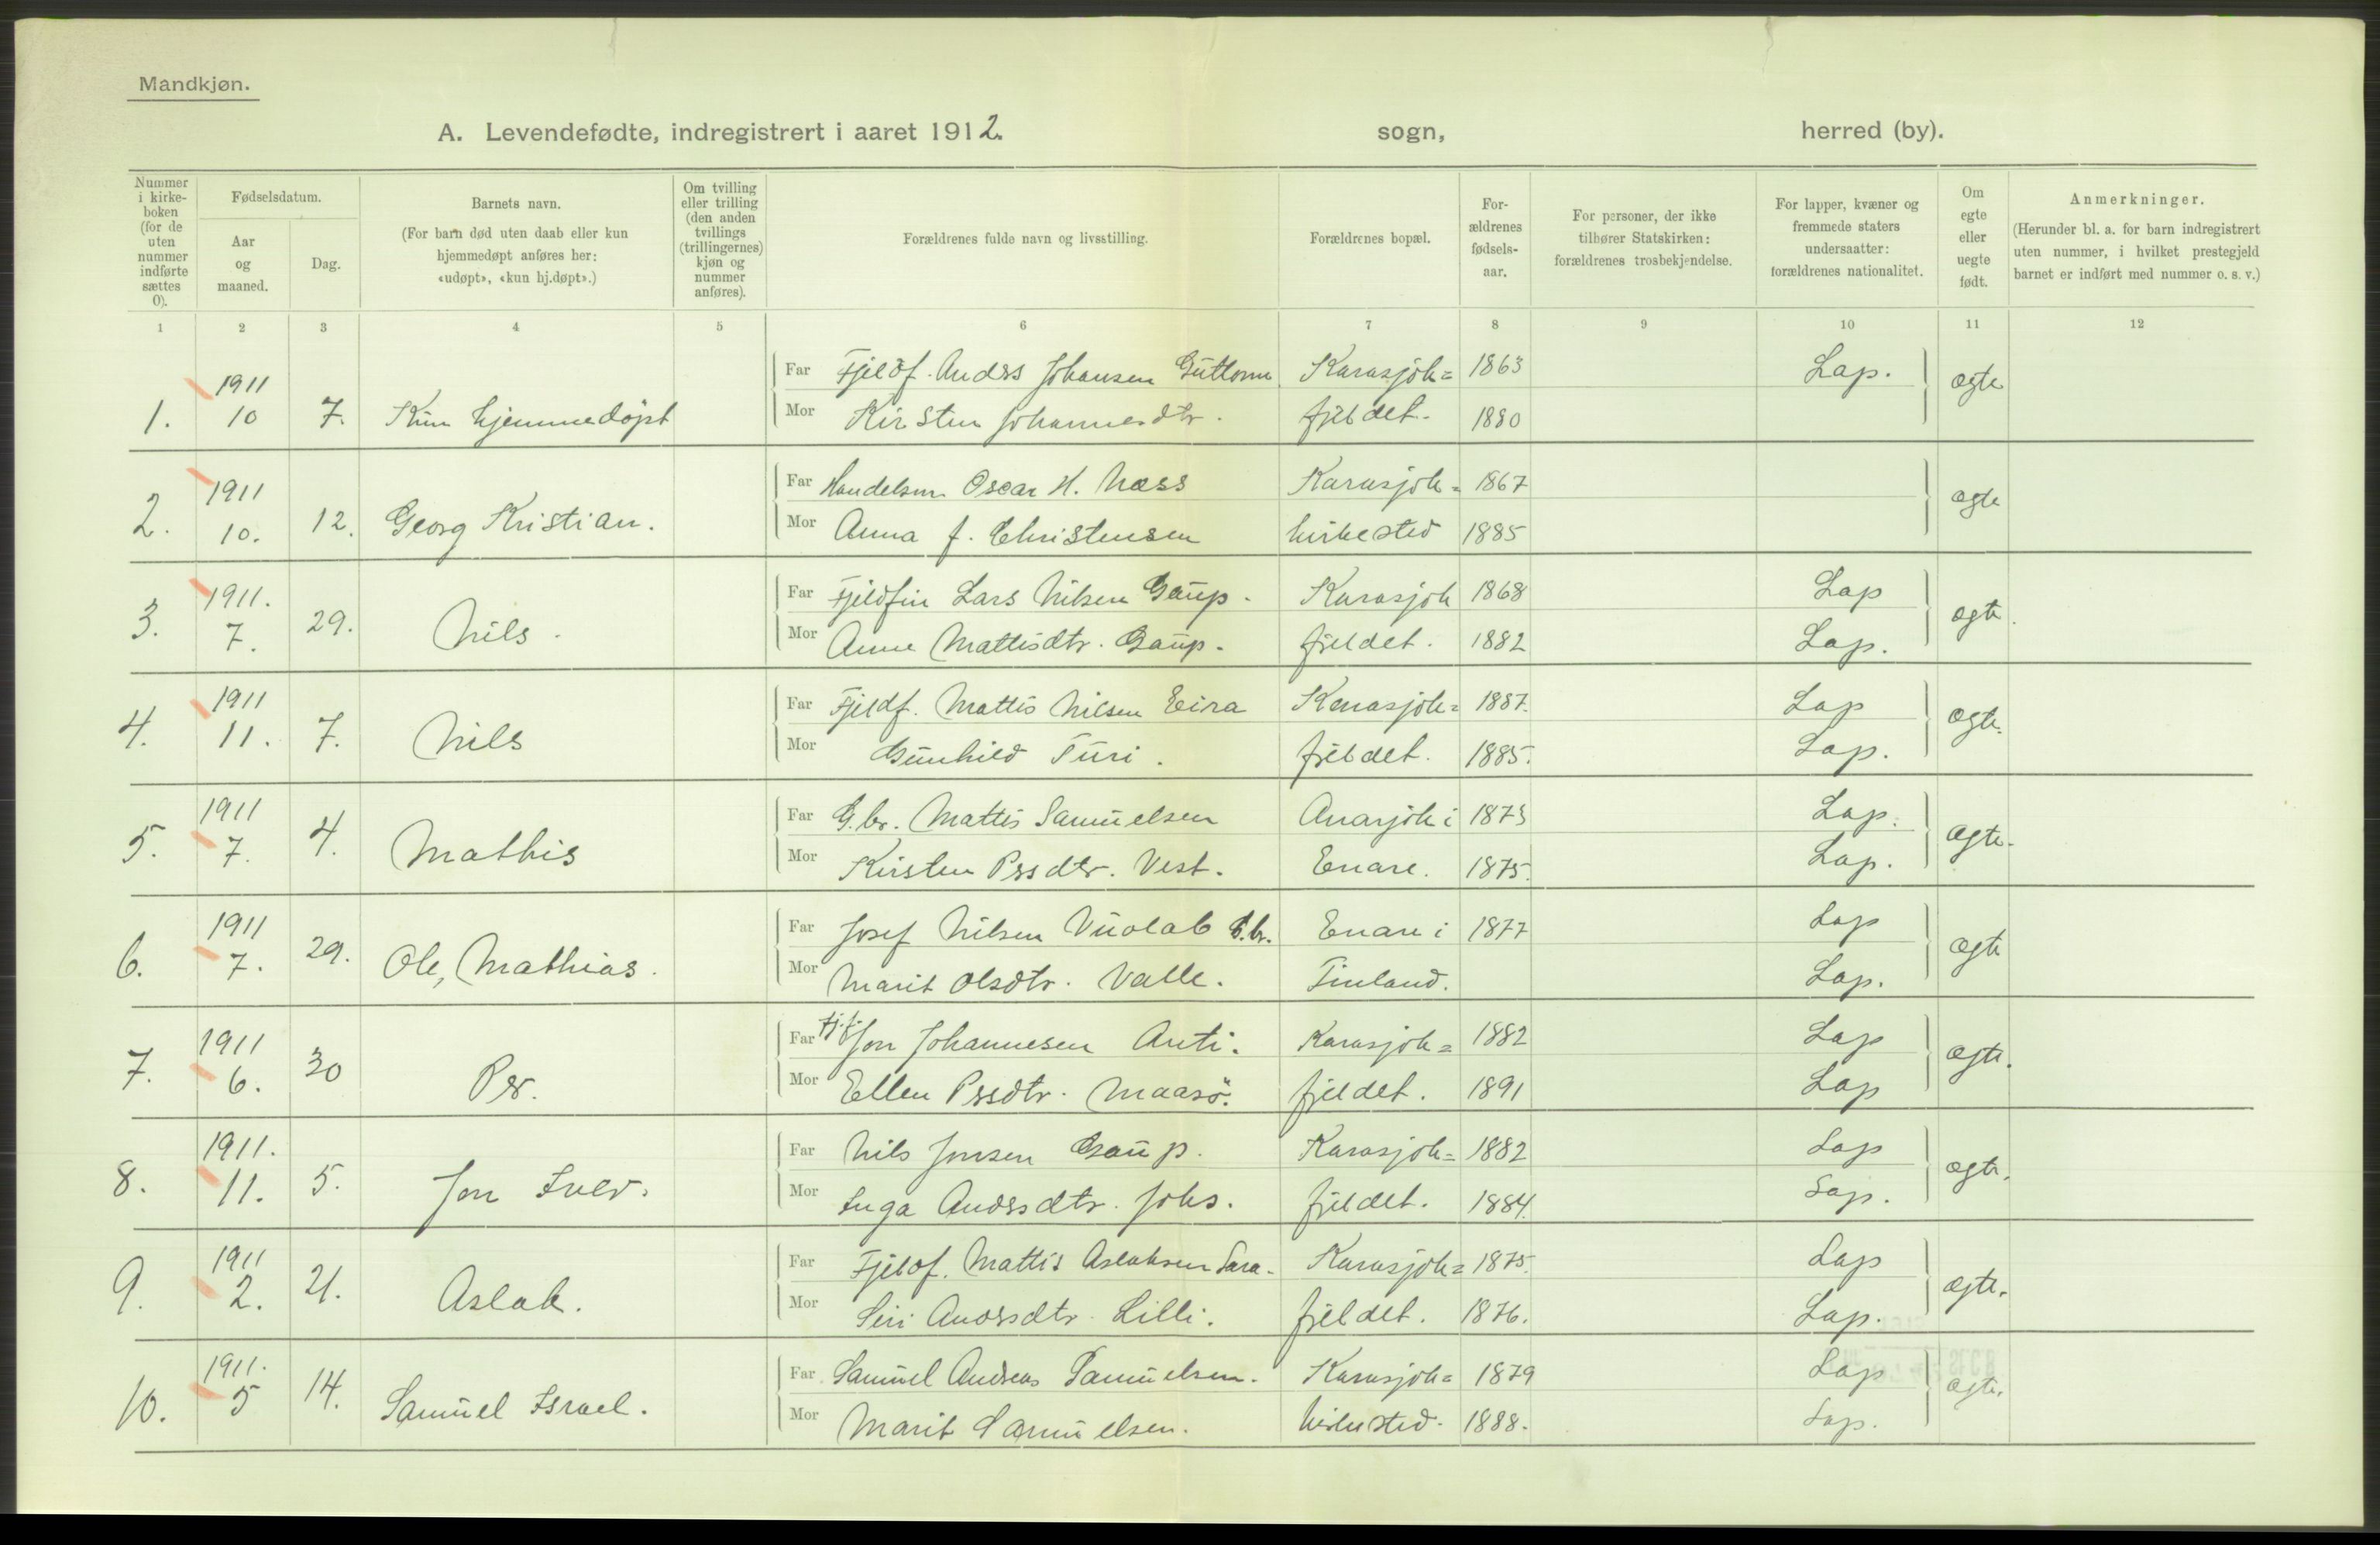 Mandkjøn.
A. Levendefødte, indregistrert i aaret 1912. sogn, herred (by).
Nummer i kirke-boken (for de uten nummer indførte sættes 0).
Fødselsdatum.
Aar og maaned.
Dag.
Barnets navn.
(For barn død uten daab eller kun hjemmedøpt anføres her: «udøpt», «kun hj.døpt».)
Om tvilling eller trilling (den anden tvillings (trillingernes) kjøn og nummer anføres).
Forældrenes fulde navn og livsstilling.
Forældrenes bopæl.
For-ældrenes fødsels-aar.
For personer, der ikke tilhører Statskirken: forældrenes trosbekjendelse.
For lapper, kvæner og fremmede staters undersaatter: forældrenes nationalitet.
Om egte eller uegte født.
Anmerkninger.
(Herunder bl. a. for barn indregistrert uten nummer, i hvilket prestegjeld barnet er indført med nummer o. s. v.)
1 2 3 4 5 6 7 8 9 10 11 12
1911 Far Fjeldf. Anders Johansen Guttorm Karasjok= 1863 Lap. ægte
1. 10 7. Kun hjemmedöpt Mor Kirsten Johannesdtr. fjeldet. 1880
1911 Far Handelsm. Oscar H. Næss Karasjok= 1867 ægte
2. 10. 12. Georg Kristian. Mor Anna J. Christensen kirkested 1885
1911. Far Fjeldfin Lars Nilsen Gaup. Karasjok 1868 Lap ægte.
3. 7. 29. Nils. Mor Anne Mattisdtr. Gaup. fjeldet. 1882 Lap.
1911 Far Fjeldf. Mattis Nilsen Eira Karasjok= 1887. Lap ægte.
4. 11. 7. Nils Mor Gunhild Turi. fjeldet. 1885. Lap.
1911 Far G.br. Mattis Samuelsen Anarjok i 1873 Lap. ægte.
5. 7. 4. Mathis Mor Kirsten Persdtr. Vest. Enare. 1875. Lap.
1911 Far Josef Nilsen Vuolab G.br. Enare i 1877 Lap ægte
6. 7. 29. Ole, Mathias. Mor Marit Olsdtr. Valle. Finland. Lap.
1911 Far Fj.f. Jon Johannesen Anti. Karasjok= 1882 Lap ægte.
7. 6. 30 Per. Mor Ellen Persdtr. Maasö. fjeldet. 1891 Lap
1911. Far Nils Jonsen Gaup. Karasjok= 1882 Lap ægte.
8. 11. 5. Jon Iver. Mor Inga Andersdtr. Johs. fjeldet. 1884. Lap.
1911 Far Fjeldf. Mattis Aslaksen Sara. Karasjok= 1875. Lap ægte.
9. 2. 21. Aslak. Mor Siri Andersdtr. Lilli. fjeldet. 1876. Lap.
1911. Far Samuel Andreas Samuelsen. Karasjok= 1879 Lap ægte.
10. 5 14. Samuel Israel. Mor Marit Samuelsen. kirkested. 1888. Lap.